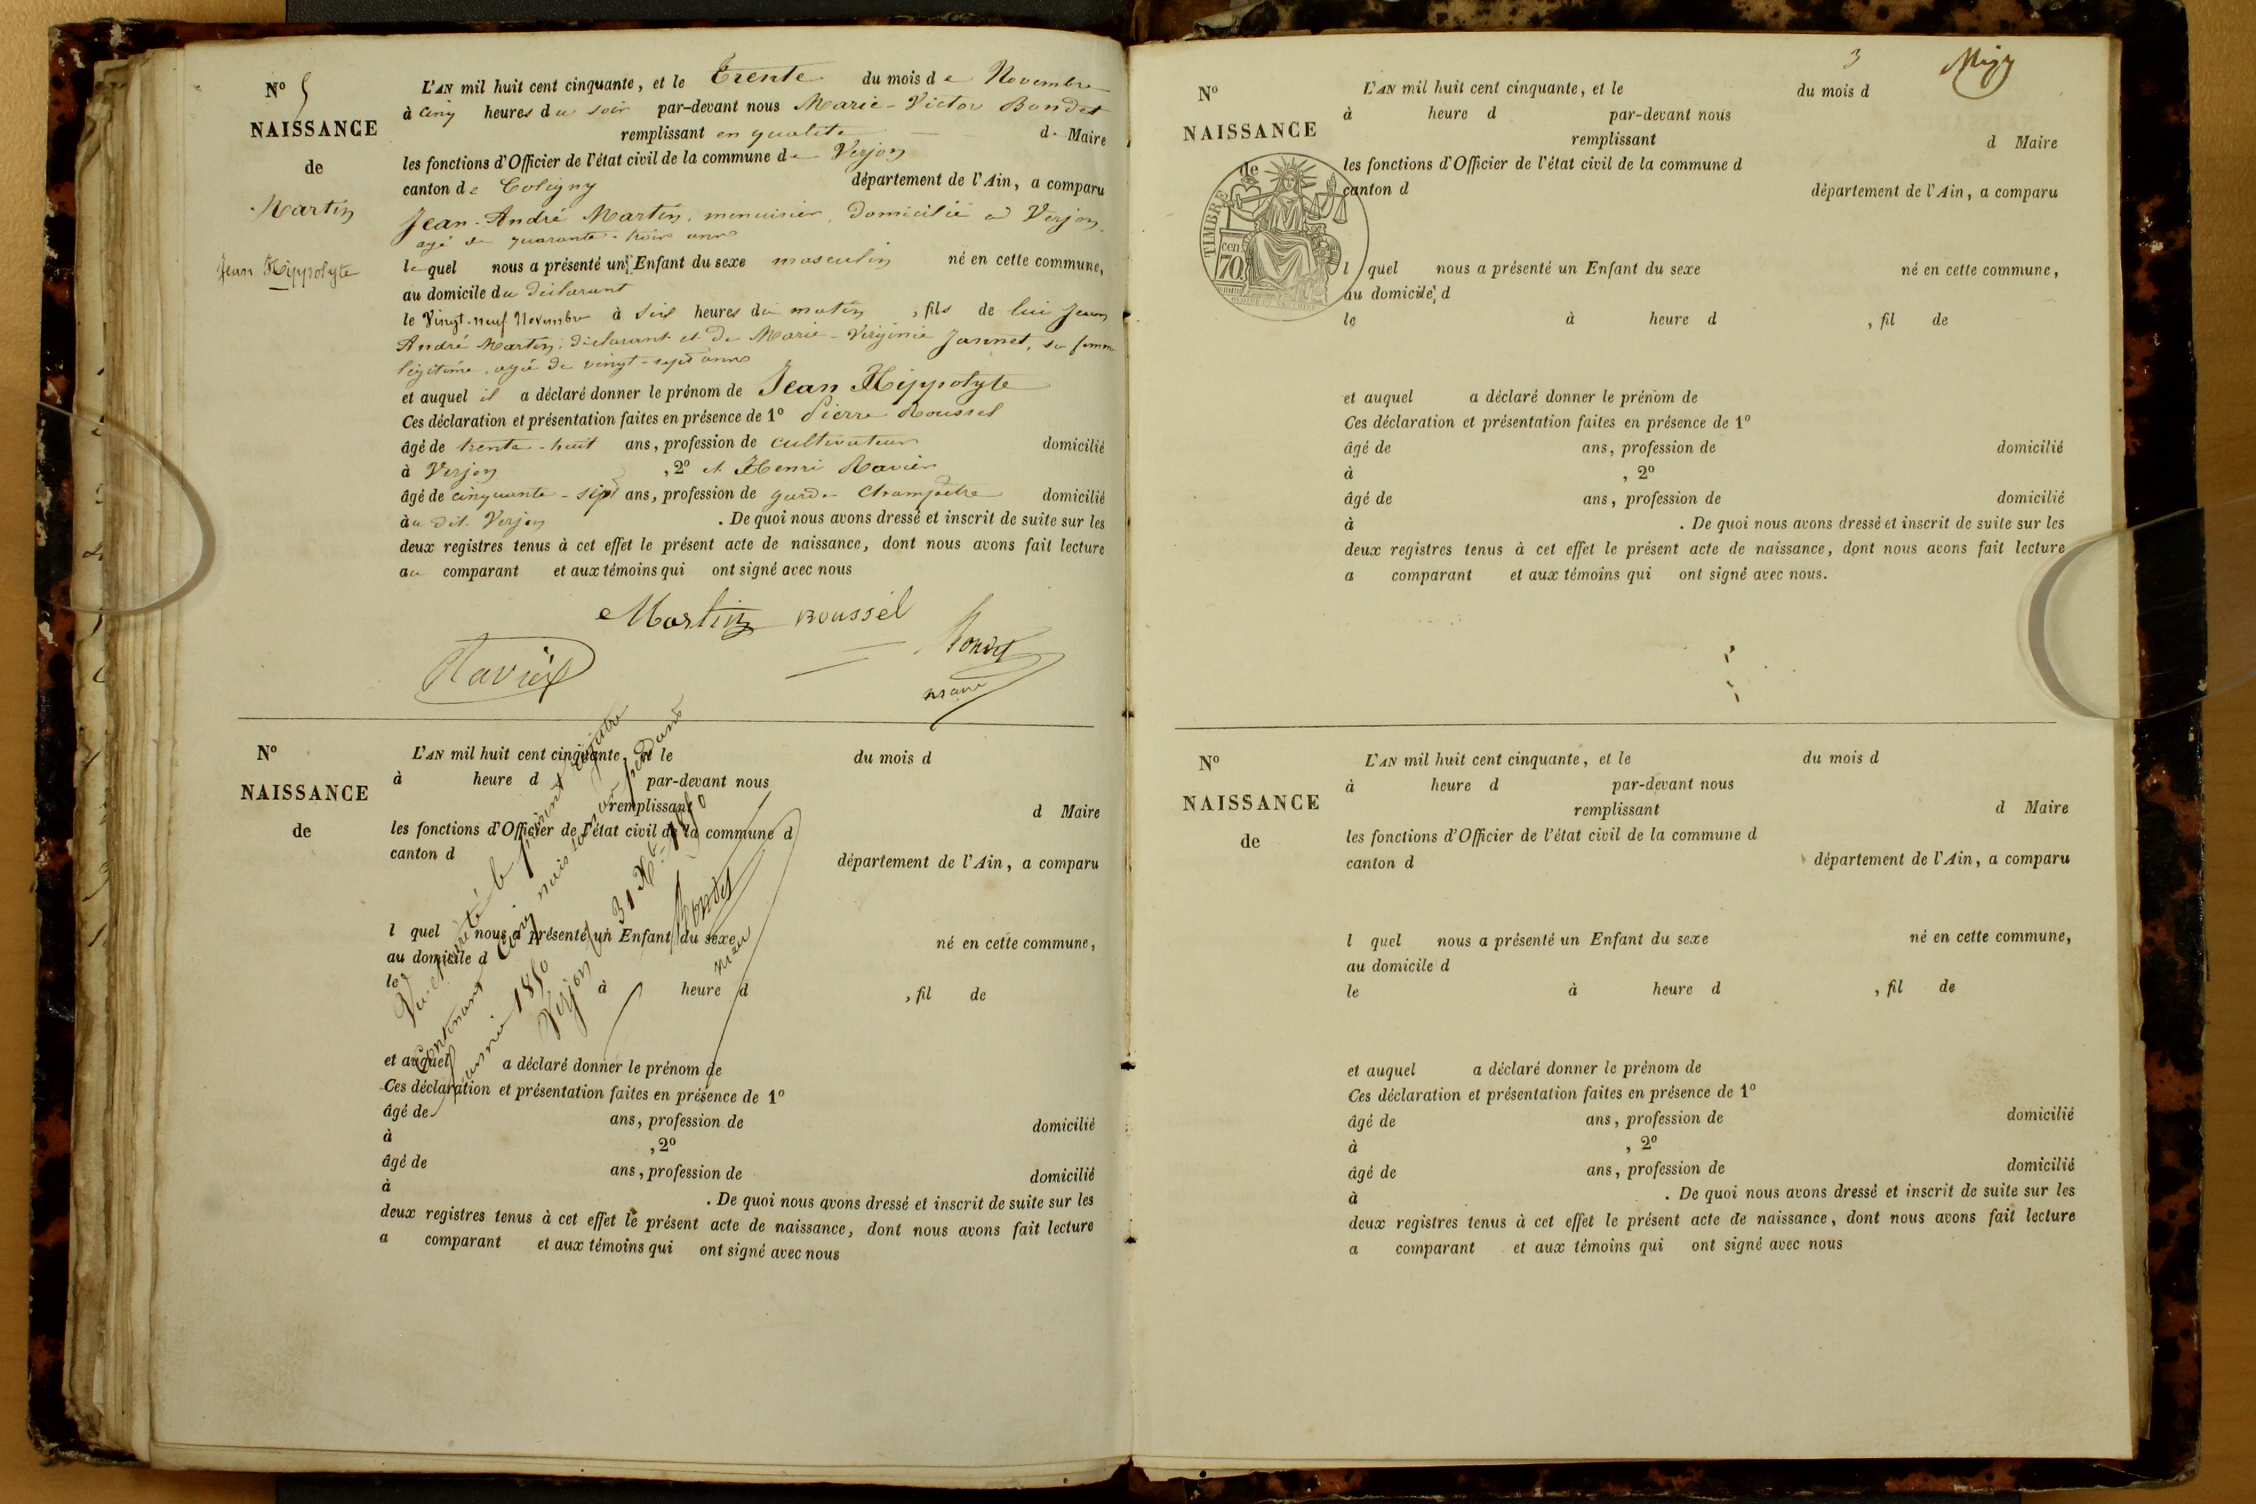 N° 5
NAISSANCE
de
Martin
Jean Hippolyte
L'AN mil huit cent cinquante, et le Trente du mois de Novembre
à cinq heures du soir par-devant nous Marie-Victor Bondet
remplissant en qualité de Maire
les fonctions d'Officier de l'état civil de la commune de Verjon
canton de Coligny département de l'Ain, a comparu
Jean-André Martin, menuisier, domicilié à Verjon,
agé de quarante-trois ans
lequel nous a présenté un Enfant du sexe masculin né en cette commune,
au domicile du déclarant
le Vingt-neuf Novembre à six heures du matin, fils de lui Jean
André Martin, déclarant et de Marie-Virginie Jannet, sa femme
légitime, agée de vingt-sept ans
et auquel il a déclaré donner le prénom de Jean Hippolyte
Ces déclaration et présentation faites en présence de 1° Pierre Roussel
âgé de trente-huit ans, profession de cultivateur domicilié
à Verjon, 2° et Henri Ravier
âgé de cinquante-sept ans, profession de garde Champêtre domicilié
au dit Verjon. De quoi nous avons dressé et inscrit de suite sur les
deux registres tenus à cet effet le présent acte de naissance, dont nous avons fait lecture
au comparant et aux témoins qui ont signé avec nous
Martin Roussel
Ravier Bondet
maire
N°
NAISSANCE
de
L'AN mil huit cent cinquante, et le du mois d
à heure d par-devant nous
remplissant d Maire
les fonctions d'Officier de l'état civil de la commune d
canton d département de l'Ain, a comparu
l quel nous a présenté un Enfant du sexe né en cette commune,
au domicile d
le à heure d , fil de
et auquel a déclaré donner le prénom de
Ces déclaration et présentation faites en présence de 1°
âgé de ans, profession de domicilié
à , 2°
âgé de ans, profession de domicilié
à . De quoi nous avons dressé et inscrit de suite sur les
deux registres tenus à cet effet le présent acte de naissance, dont nous avons fait lecture
a comparant et aux témoins qui ont signé avec nous
Vu et arrêté le présent registre
Contenant Cinq naissances pendant
l'année 1850
Verjon 31 Xbre 1850
Bondet
maire
3
N°
NAISSANCE
de
TIMBRE
cen.
70
L'AN mil huit cent cinquante, et le du mois d
à heure d par-devant nous
remplissant d Maire
les fonctions d'Officier de l'état civil de la commune d
canton d département de l'Ain, a comparu
l quel nous a présenté un Enfant du sexe né en cette commune,
au domicile d
le à heure d , fil de
et auquel a déclaré donner le prénom de
Ces déclaration et présentation faites en présence de 1°
âgé de ans, profession de domicilié
à , 2°
âgé de ans, profession de domicilié
à . De quoi nous avons dressé et inscrit de suite sur les
deux registres tenus à cet effet le présent acte de naissance, dont nous avons fait lecture
a comparant et aux témoins qui ont signé avec nous.
N°
NAISSANCE
de
L'AN mil huit cent cinquante, et le du mois d
à heure d par-devant nous
remplissant d Maire
les fonctions d'Officier de l'état civil de la commune d
canton d département de l'Ain, a comparu
l quel nous a présenté un Enfant du sexe né en cette commune,
au domicile d
le à heure d , fil de
et auquel a déclaré donner le prénom de
Ces déclaration et présentation faites en présence de 1°
âgé de ans, profession de domicilié
à , 2°
âgé de ans, profession de domicilié
à . De quoi nous avons dressé et inscrit de suite sur les
deux registres tenus à cet effet le présent acte de naissance, dont nous avons fait lecture
a comparant et aux témoins qui ont signé avec nous